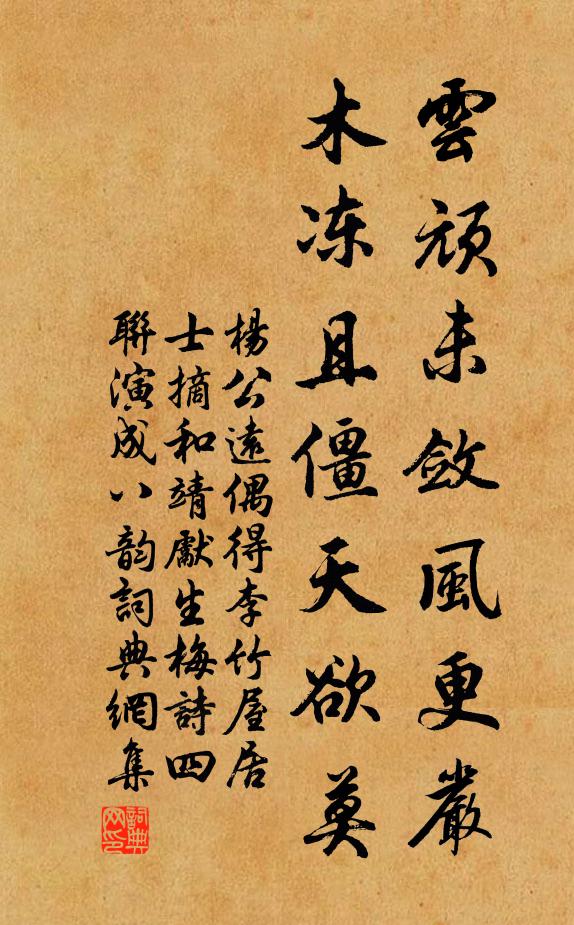 雲頑未斂風更嚴
木冻且僵天欲莫
楊公遠偶得李竹屋居
士摘和靖獻生梅詩四
聯演成八韵詞典網集
詞典網印